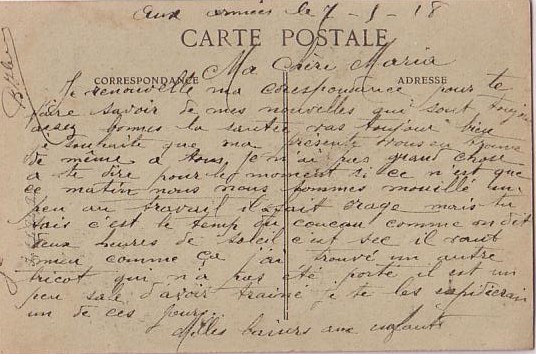 aux armées le 7-5-18
CARTE POSTALE
CORRESPONDANCE
ADRESSE
Ma Chère Maria
Je renouvelle ma corespondance pour te
faire savoir de mes nouvelles qui sont toujour
assez bonnes la santée vas toujour bien
je souhaite que ma présente vous en trouve
de même a tous je n'ai pas grand chose
a te dire pour le moment si ce n'est que
ce matin nous nous sommes mouillé un
peu au travail il fait orage mais tu
sais c'est le temp du coucou comme on dit
deux heures de soleil c'est sec il vaut
mieu comme ça j'ai trouvé un autre
tricot qui n'a pas été porté il est un
peu sale d'avoir trainé je te les expédierai
un de ces jour
Milles baisers aux enfants